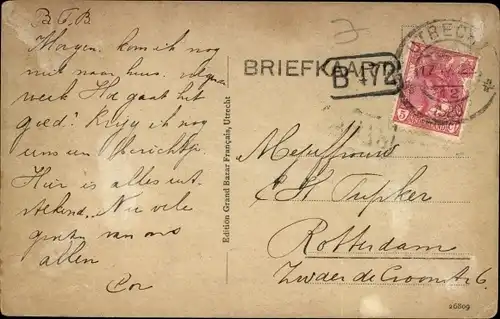 B. F. B.
Morgen kom ik nog
niet naar huis. volgende
week Hoe gaat het
goed? Krijg ik nog
uns een berichtje.
Hier is alles uit-
stekend. Nu vele
groeten van ons
allen
Cor
Edition Grand Bazar Français, Utrecht
BRIEFKAART
B 472
UTRECHT
5
NEDERLAND
Mejuffrouw
C H Tupker
Rotterdam
26809